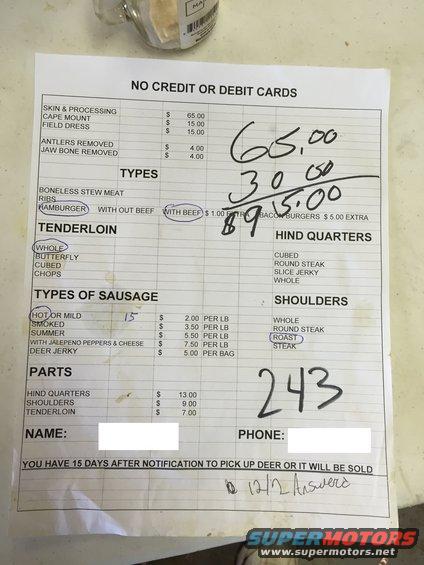 MA
NO CREDIT OR DEBIT CARDS
SKIN & PROCESSING $ 65.00
CAPE MOUNT $ 15.00
FIELD DRESS $ 15.00
ANTLERS REMOVED $ 4.00
JAW BONE REMOVED $ 4.00
65.00
30 00
$95.00
TYPES
BONELESS STEW MEAT
RIBS
HAMBURGER WITH OUT BEEF WITH BEEF $ 1.00 EXTRA BACON BURGERS $ 5.00 EXTRA
TENDERLOIN HIND QUARTERS
WHOLE CUBED
BUTTERFLY ROUND STEAK
CUBED SLICE JERKY
CHOPS WHOLE
TYPES OF SAUSAGE SHOULDERS
HOT OR MILD 15 $ 2.00 PER LB WHOLE
SMOKED $ 3.50 PER LB ROUND STEAK
SUMMER $ 5.50 PER LB ROAST
WITH JALEPENO PEPPERS & CHEESE $ 7.50 PER LB STEAK
DEER JERKY $ 5.00 PER BAG
PARTS
243
HIND QUARTERS $ 13.00
SHOULDERS $ 9.00
TENDERLOIN $ 7.00
NAME: PHONE:
YOU HAVE 15 DAYS AFTER NOTIFICATION TO PICK UP DEER OR IT WILL BE SOLD
12/2 Answerd
SUPERMOTORS
www.supermotors.net